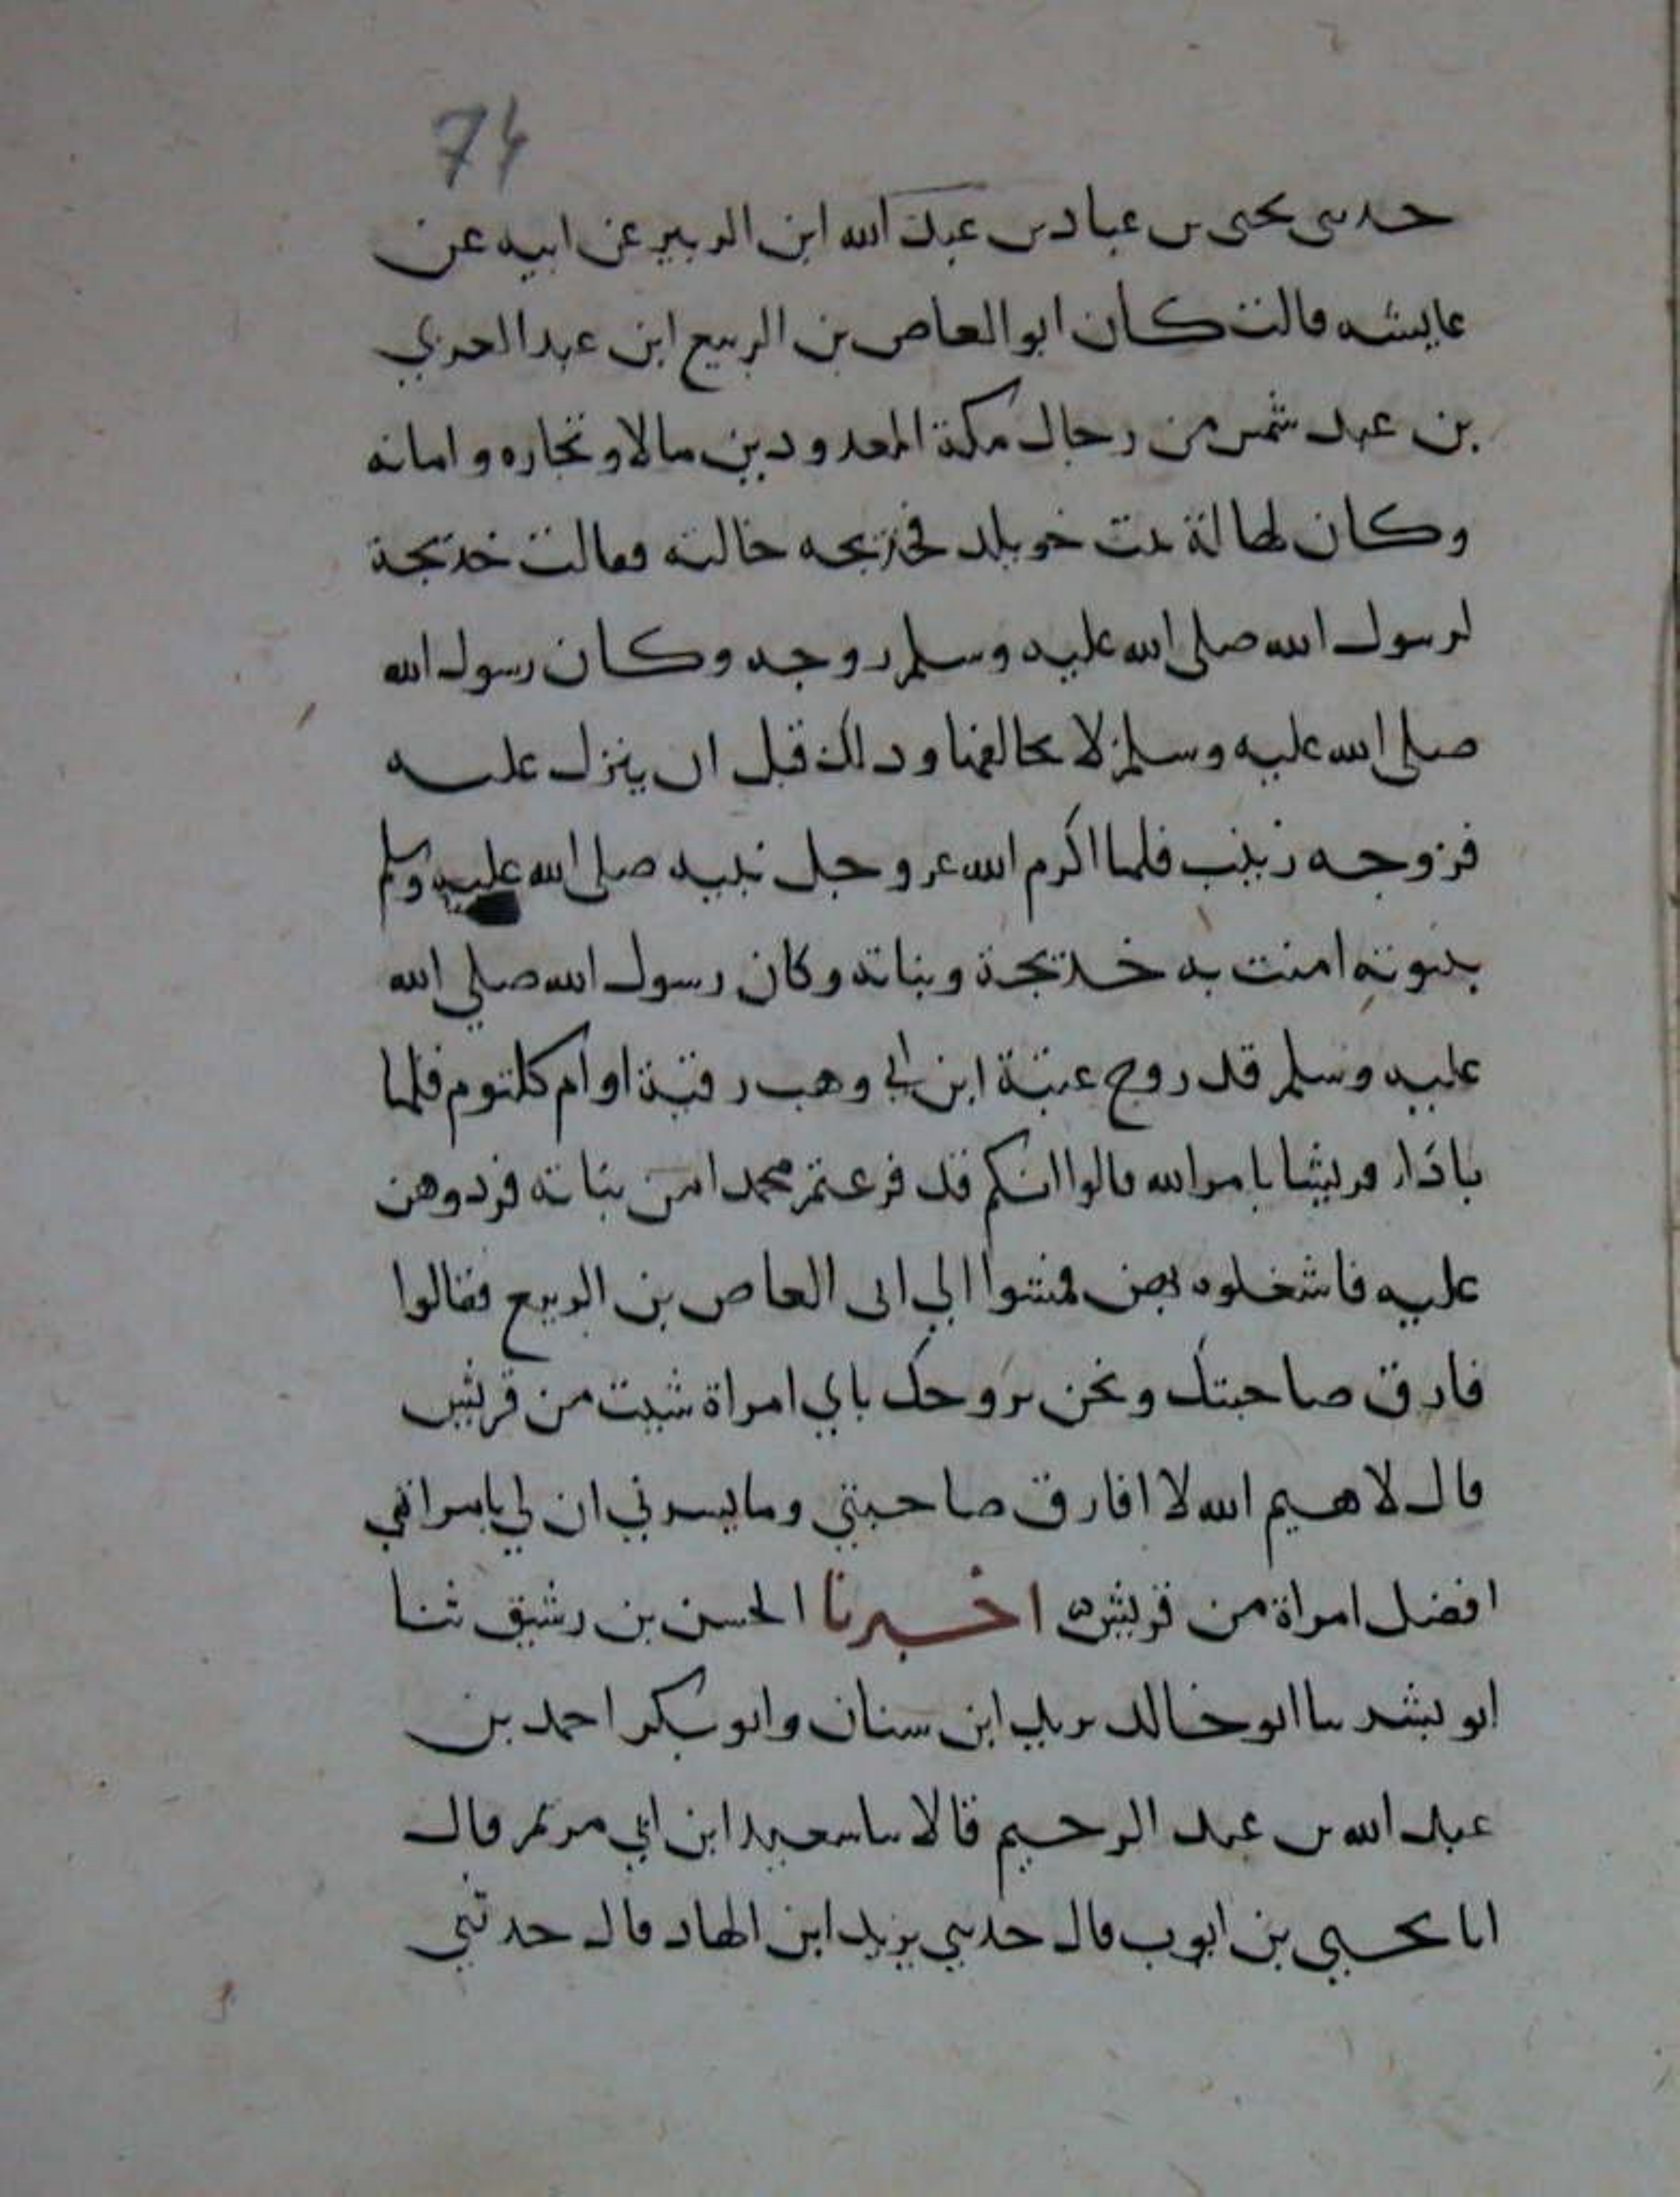 74
حدسى يحيى بن عباد بن عبد الله ابن الزبير عن ابيه عن
عايشه قالت كان ابو العاص بن الربيع ابن عبد العزي
بن عبد شمس من رجال مكة المعدودين مالا وتجاره وامانه
وكان لهالة بنت خويلد فخديجه خالته فقالت خديجة
لرسول الله صلى الله عليه وسلم زوجه وكان رسول الله
صلى الله عليه وسلم لا يخالفها وذلك قبل ان ينزل عليه
فزوجه زينب فلما اكرم الله عز وجل نبيه صلى الله عليه وسلم
بنبوته امنت به خديجة وبناته وكان رسول الله صلي الله
عليه وسلم قد زوج عتبة ابن ابي وهب رقية او ام كلثوم فلما
بادا قريشا بامر الله قالوا انكم قد فرعتم محمدا من بناته فردوهن
عليه فاشغلوه بهن فمشوا الي ابى العاص بن الربيع فقالوا
فارق صاحبتك ونحن نزوجك باي امراة شيت من قريش
قال لا هيم الله لا افارق صاحبتي وما يسرني ان لي بامراتي
افضل امراة من قريش اخبرنا الحسن بن رشيق ثنا
ابو بشر ثنا ابو خالد يزيد ابن سنان وابو بكر احمد بن
عبد الله بن عبد الرحيم قالا ثنا سعيد ابن ابي مريم قال
انا يحيي بن ايوب قال حدثني يزيد ابن الهاد قال حدثني